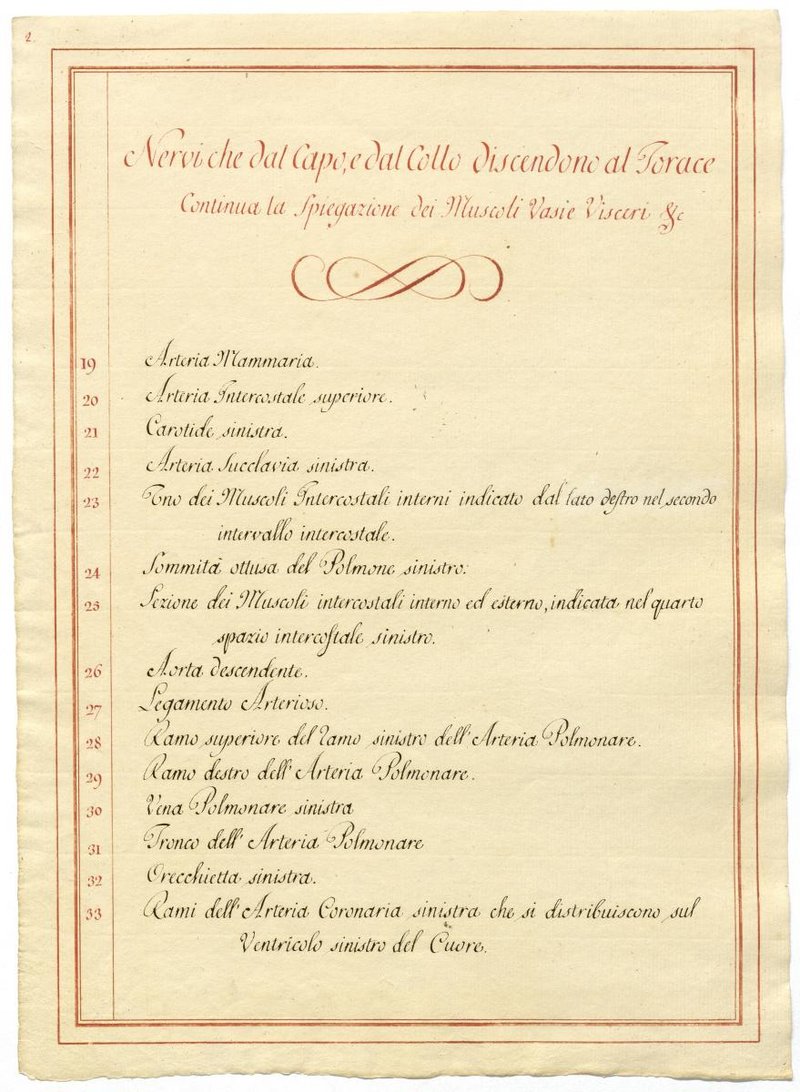 2.
Nervi che dal Capo, e dal Collo discendono al Torace
Continua la Spiegazione dei Muscoli Vasi e Visceri &c
19 Arteria Mammaria.
20 Arteria Intercostale superiore.
21 Carotide sinistra.
22 Arteria Succlavia sinistra.
23 Uno dei Muscoli Intercostali interni indicato dal lato destro nel secondo
intervallo intercostale.
24 Sommità ottusa del Polmone sinistro.
25 Sezione dei Muscoli intercostali interno ed esterno, indicata nel quarto
spazio intercostale sinistro.
26 Aorta descendente.
27 Legamento Arterioso.
28 Ramo superiore del ramo sinistro dell' Arteria Polmonare.
29 Ramo destro dell' Arteria Polmonare.
30 Vena Polmonare sinistra
31 Tronco dell' Arteria Polmonare
32 Orecchietta sinistra.
33 Rami dell' Arteria Coronaria sinistra che si distribuiscono sul
Ventricolo sinistro del Cuore.